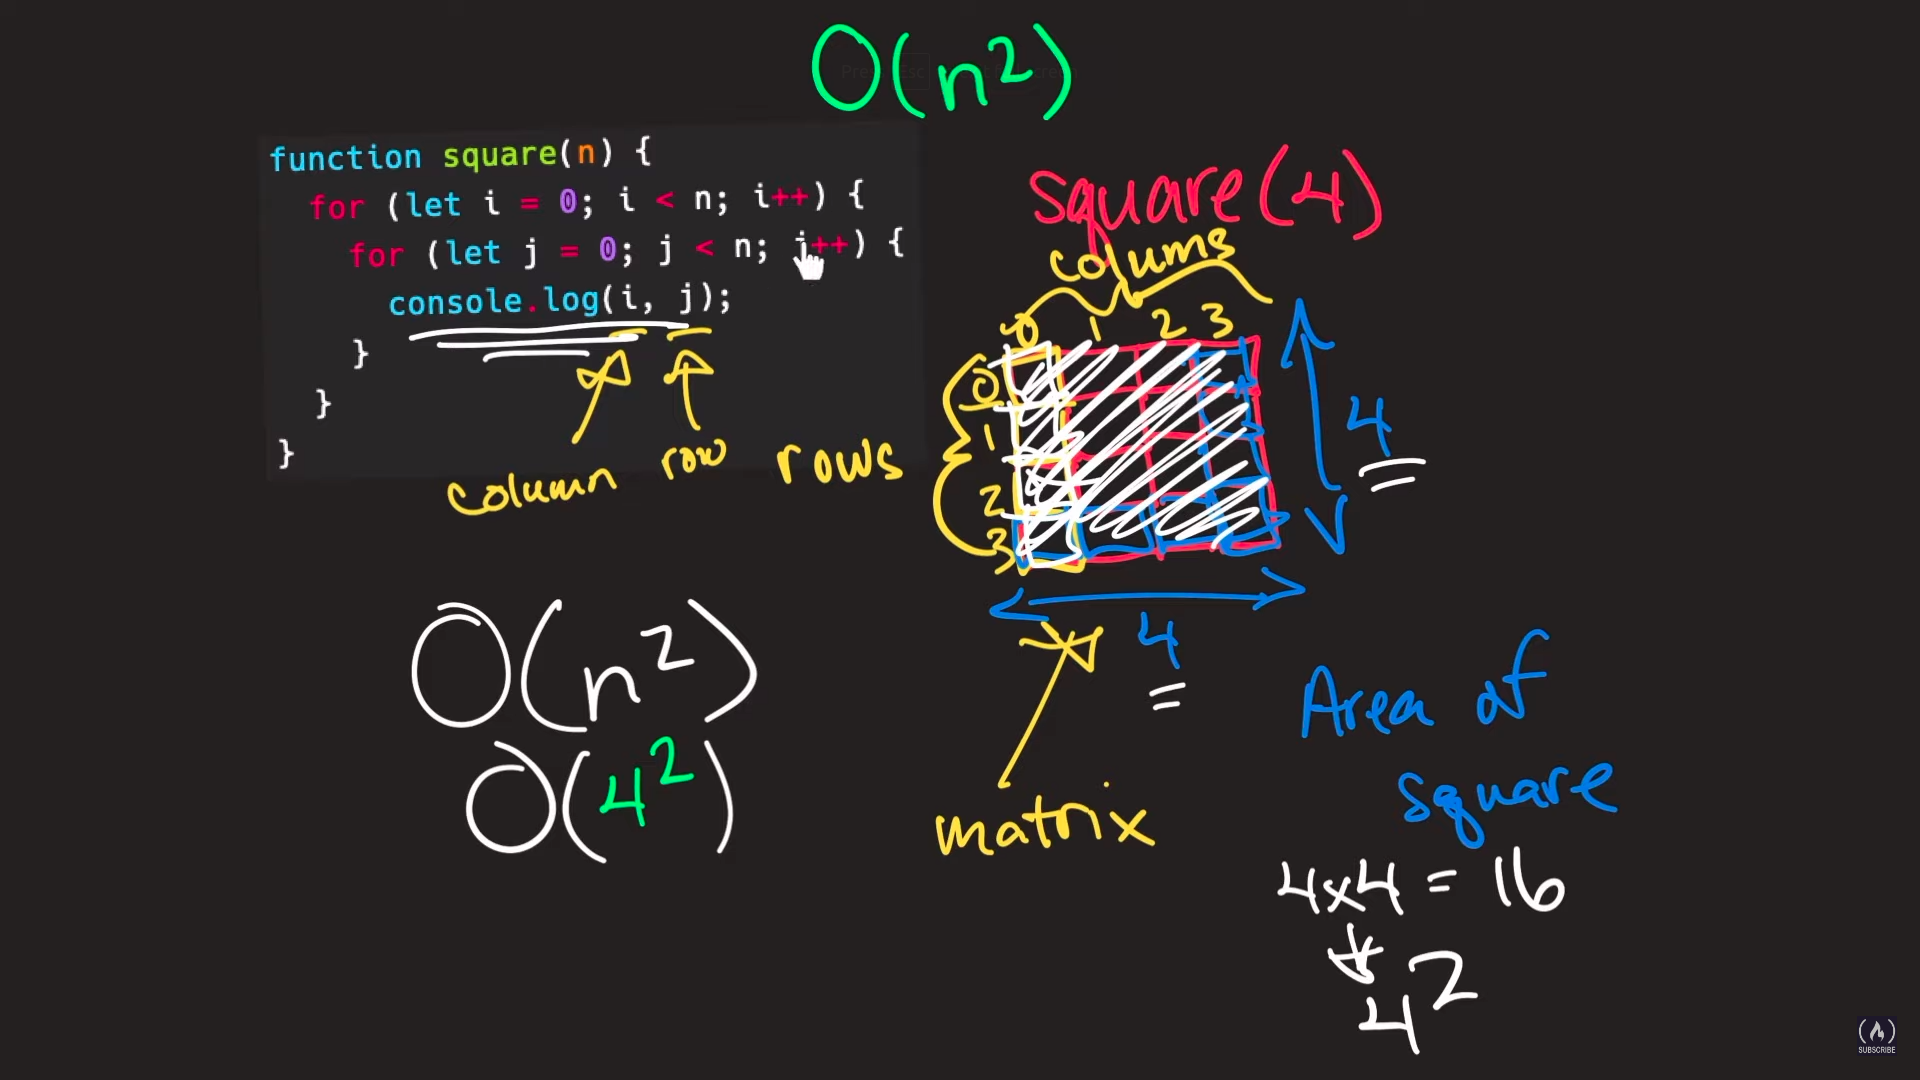 O(n²)
function square(n) {
for (let i = 0; i < n; i++) {
for (let j = 0; j < n; j++) {
console.log(i, j);
}
}
}
column row
rows
square(4)
colums
0 1 2 3
0
1
2
3
4
4
matrix
O(n²)
O(4²)
Area of
square
4x4 = 16
4²
SUBSCRIBE